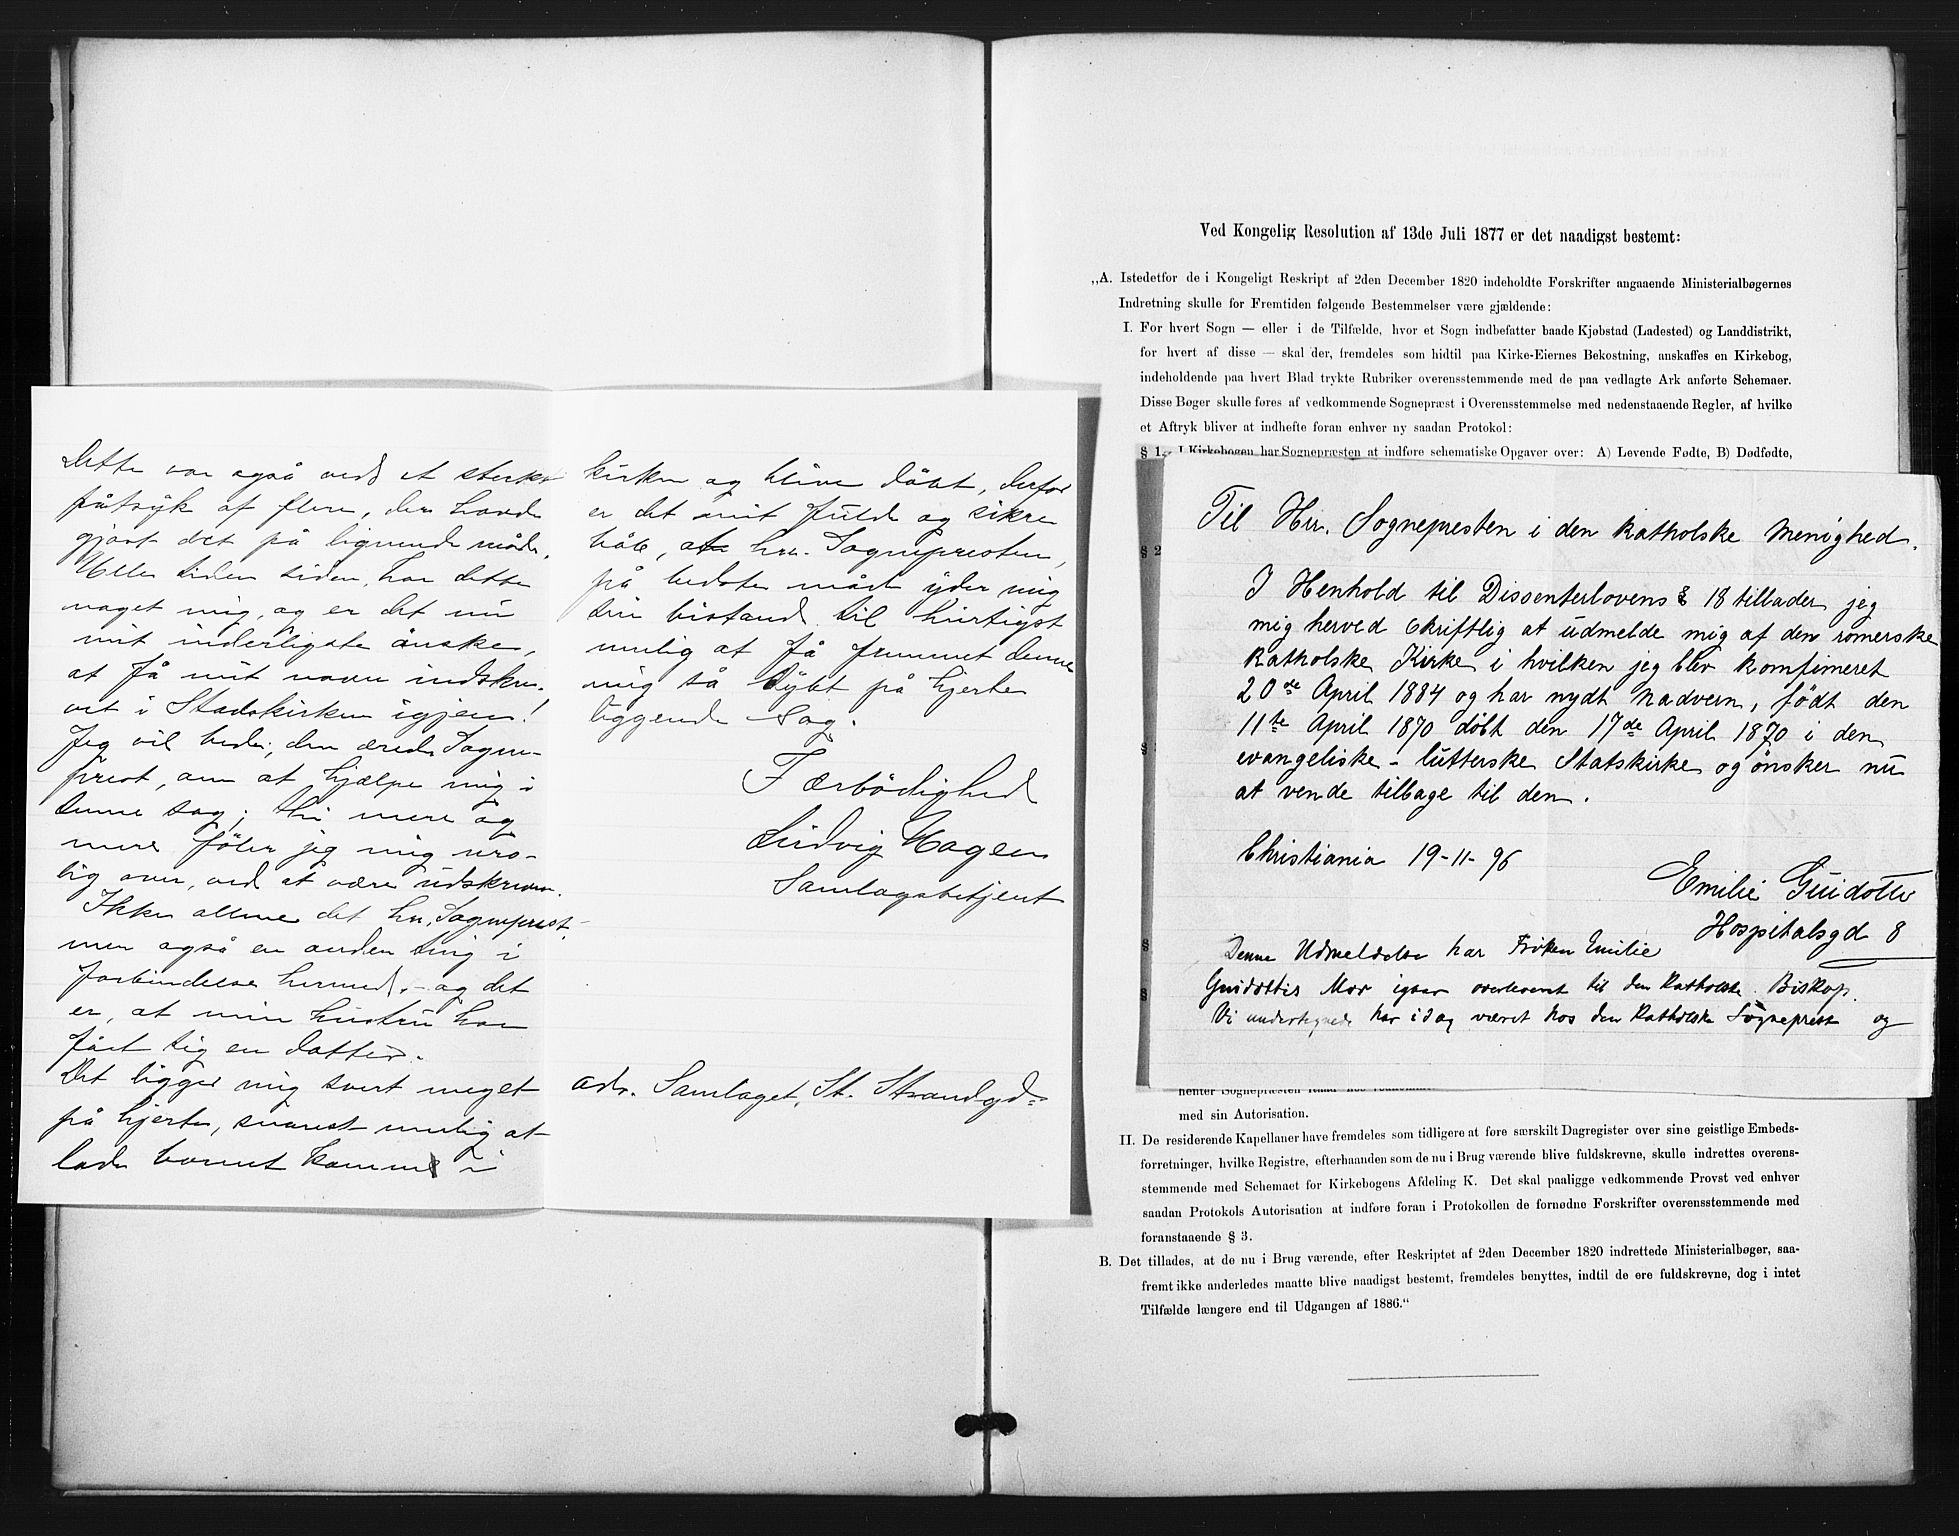 Dette var også ved et sterkt
påtryk af flere, der havde
gjort det på lignende måde.
Alle tiden siden, har dette
naget mig, og er det nu
mit inderligste ånske,
at få mit navn indskre-
vet i Stadskirken igjen!
Jeg vil bede, den ærede Sogne-
prest, om at hjælpe mig i
denne sag; thi mere og
mere føler jeg mig uro-
lig over, ved at være udskreven.
Ikke allene det hr. Sogneprest,
men også en anden ting i
forbindelse hermed, - og det
er, at min hustru har
fåt sig en datter.
Det ligger mig svert meget
på hjerte, snarest mulig at
lade barnet komme i
kirken og blive døbt, derfor
er det mit fulde og sikre
håb, at hr. Sognepresten,
på bedste måde yder mig
sin bistand til hurtigst
mulig at få fremmet denne
mig så dybt på hjerte
liggende sag.
Færbødighed
Ludvig Hagen
Samlagsbetjent
adr. Samlaget, St. Strandgd=
Ved Kongelig Resolution af 13de Juli 1877 er det naadigst bestemt:
„A. Istedetfor de i Kongeligt Reskript af 2den December 1820 indeholdte Forskrifter angaaende Ministerialbøgernes
Indretning skulle for Fremtiden følgende Bestemmelser være gjældende:
I. For hvert Sogn — eller i de Tilfælde, hvor et Sogn indbefatter baade Kjøbstad (Ladested) og Landdistrikt,
for hvert af disse — skal der, fremdeles som hidtil paa Kirke-Eiernes Bekostning, anskaffes en Kirkebog,
indeholdende paa hvert Blad trykte Rubriker overensstemmende med de paa vedlagte Ark anførte Schemaer.
Disse Bøger skulle føres af vedkommende Sognepræst i Overensstemmelse med nedenstaaende Regler, af hvilke
et Aftryk bliver at indhefte foran enhver ny saadan Protokol:
§ 1. I Kirkebogen har Sognepræsten at indføre schematiske Opgaver over: A) Levende Fødte, B) Dødfødte,
§ 2
§
§
§
Til Hrr. Sognepresten i den katholske Menighed.
I Henhold til Dissenterlovens § 18 tillader jeg
mig herved skriftlig at udmelde mig af den romerske
katholske Kirke i hvilken jeg blev konfimeret
20de April 1884 og har nydt nadvern, født den
11te April 1870 døbt den 17de April 1870 i den
evangeliske - lutterske Statskirke og ønsker nu
at vende tilbage til den.
Christiania 19-11-96
Emilie Guidotti
Hospitalsgd 8
Denne Udmeldelse har Frøken Emilie
Guidottis Mor igaar overleveret til den Katholske Biskop.
Vi undertegnede har idag været hos den Katholske Sogneprest og
nenter Sognepræsten
med sin Autorisation.
II. De residerende Kapellaner have fremdeles som tidligere at føre særskilt Dagregister over sine geistlige Embeds-
forretninger, hvilke Registre, efterhaanden som de nu i Brug værende blive fuldskrevne, skulle indrettes overens-
stemmende med Schemaet for Kirkebogens Afdeling K. Det skal paaligge vedkommende Provst ved enhver
saadan Protokols Autorisation at indføre foran i Protokollen de fornødne Forskrifter overensstemmende med
foranstaaende § 3.
B. Det tillades, at de nu i Brug værende, efter Reskriptet af 2den December 1820 indrettede Ministerialbøger, saa-
fremt ikke anderledes maatte blive naadigst bestemt, fremdeles benyttes, indtil de ere fuldskrevne, dog i intet
Tilfælde længere end til Udgangen af 1886.“